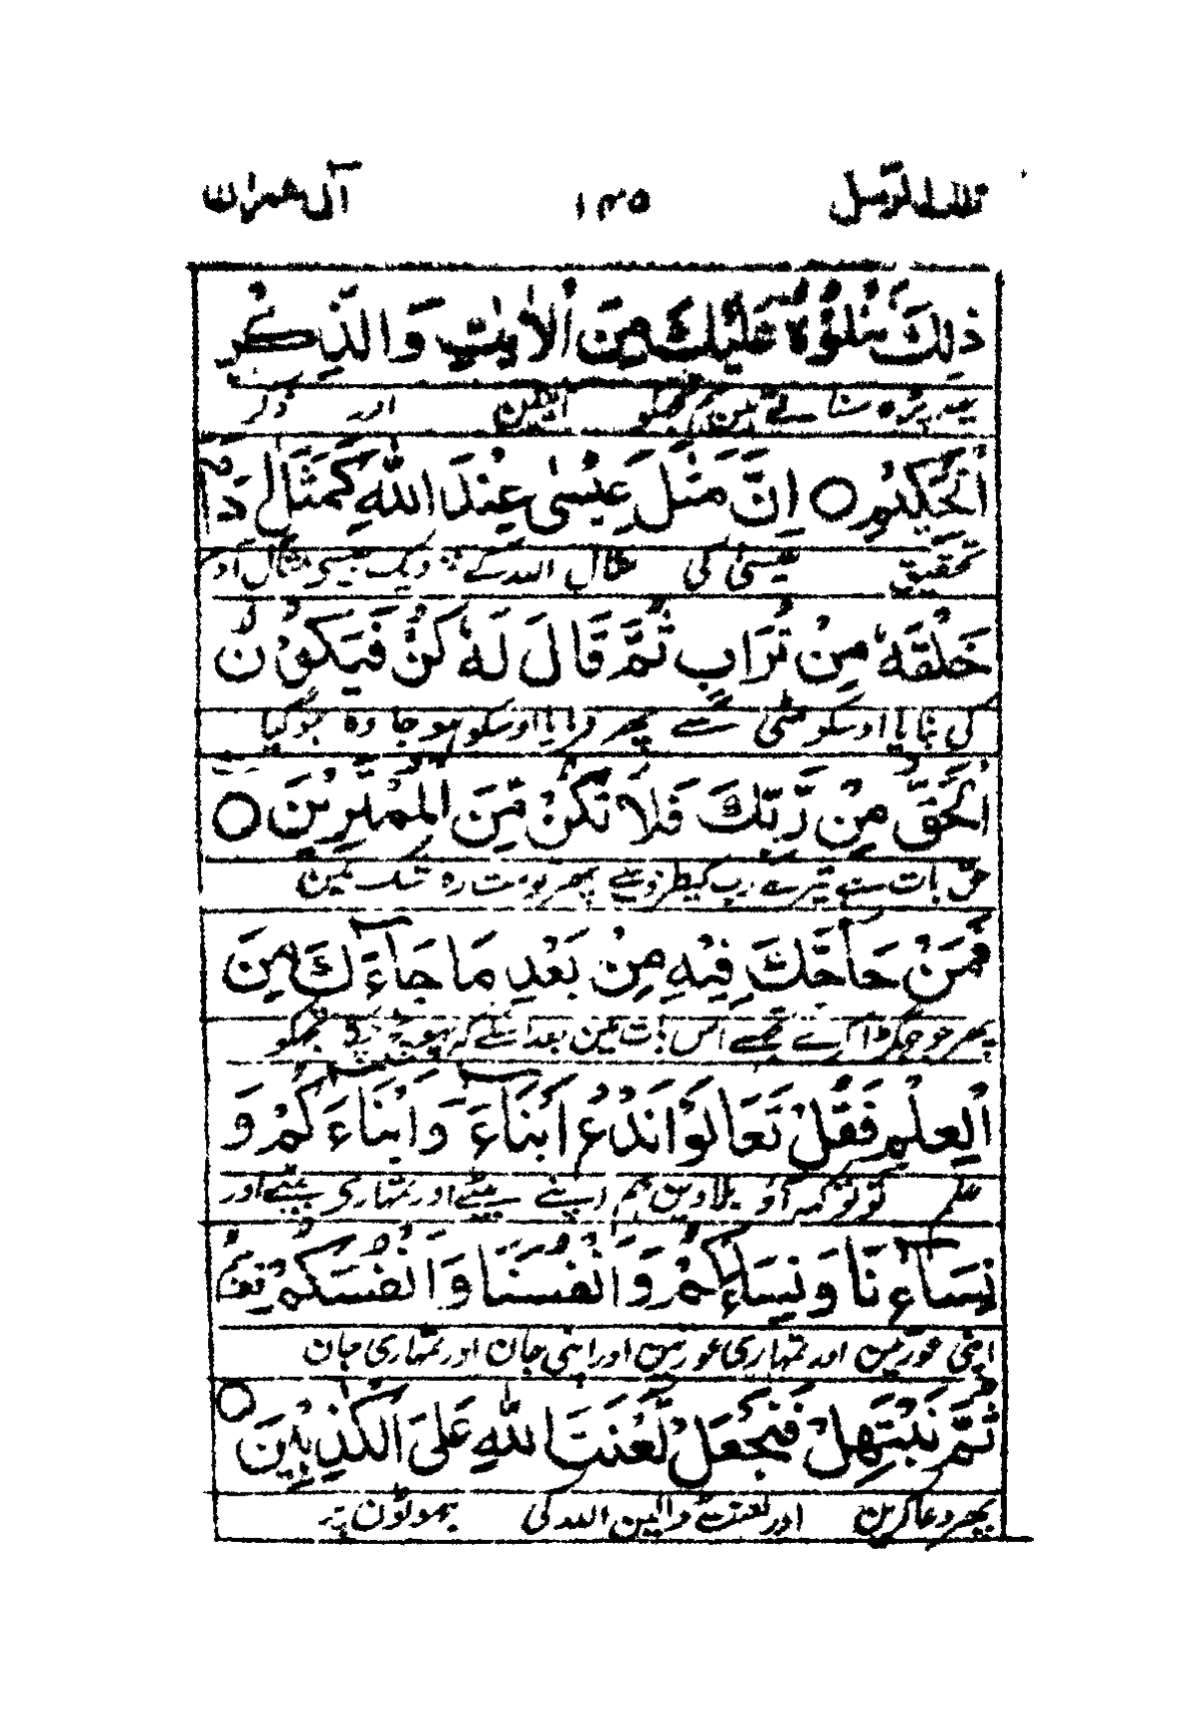 تلك الرسل ١٣٥ آل عمران
ذٰلِكَ نَتْلُوْهُ عَلَيْكَ مِنَ الْاٰيٰتِ وَالذِّكْرِ
یہہ پڑہ سناتے ہین ہم تجھکو آیتین اور ذکر
الْحَكِيْمِ ○ اِنَّ مَثَلَ عِيْسٰى عِنْدَ اللّٰهِ كَمَثَلِ اٰدَمَ
تحقیق عیسیٰ کی مثال اللہ کے نزدیک جیسی مثال آدم
خَلَقَهٗ مِنْ تُرَابٍ ثُمَّ قَالَ لَهٗ كُنْ فَيَكُوْنُ
کی بنایا اوسکو مٹی سے پھر فرمایا اوسکو ہوجا وہ ہوگیا
اَلْحَقُّ مِنْ رَّبِّكَ فَلَا تَكُنْ مِّنَ الْمُمْتَرِيْنَ ○
حق بات ہے تیرے رب کیطرف سے پھر تو مت رہ شک مین
فَمَنْ حَآجَّكَ فِيْهِ مِنْ بَعْدِ مَا جَآءَكَ مِنَ
پھر جو جھگڑا کرے تجھسے اس بات مین بعد اسکے کہ پہونچ چکا تجھکو
الْعِلْمِ فَقُلْ تَعَالَوْا نَدْعُ اَبْنَآءَنَا وَاَبْنَآءَكُمْ وَ
علم تو تو کہہ آؤ بلاوین ہم اپنے بیٹے اور تمہاری بیٹے اور
نِسَآءَنَا وَنِسَآءَكُمْ وَاَنْفُسَنَا وَاَنْفُسَكُمْ
اپنی عورتین اور تمہاری عورتین اور اپنی جان اور تمہاری جان
ثُمَّ نَبْتَهِلْ فَنَجْعَلْ لَّعْنَتَ اللّٰهِ عَلَى الْكٰذِبِيْنَ ○
پھر دعا کرین اور لعنت ڈالین اللہ کی جھوٹون پر